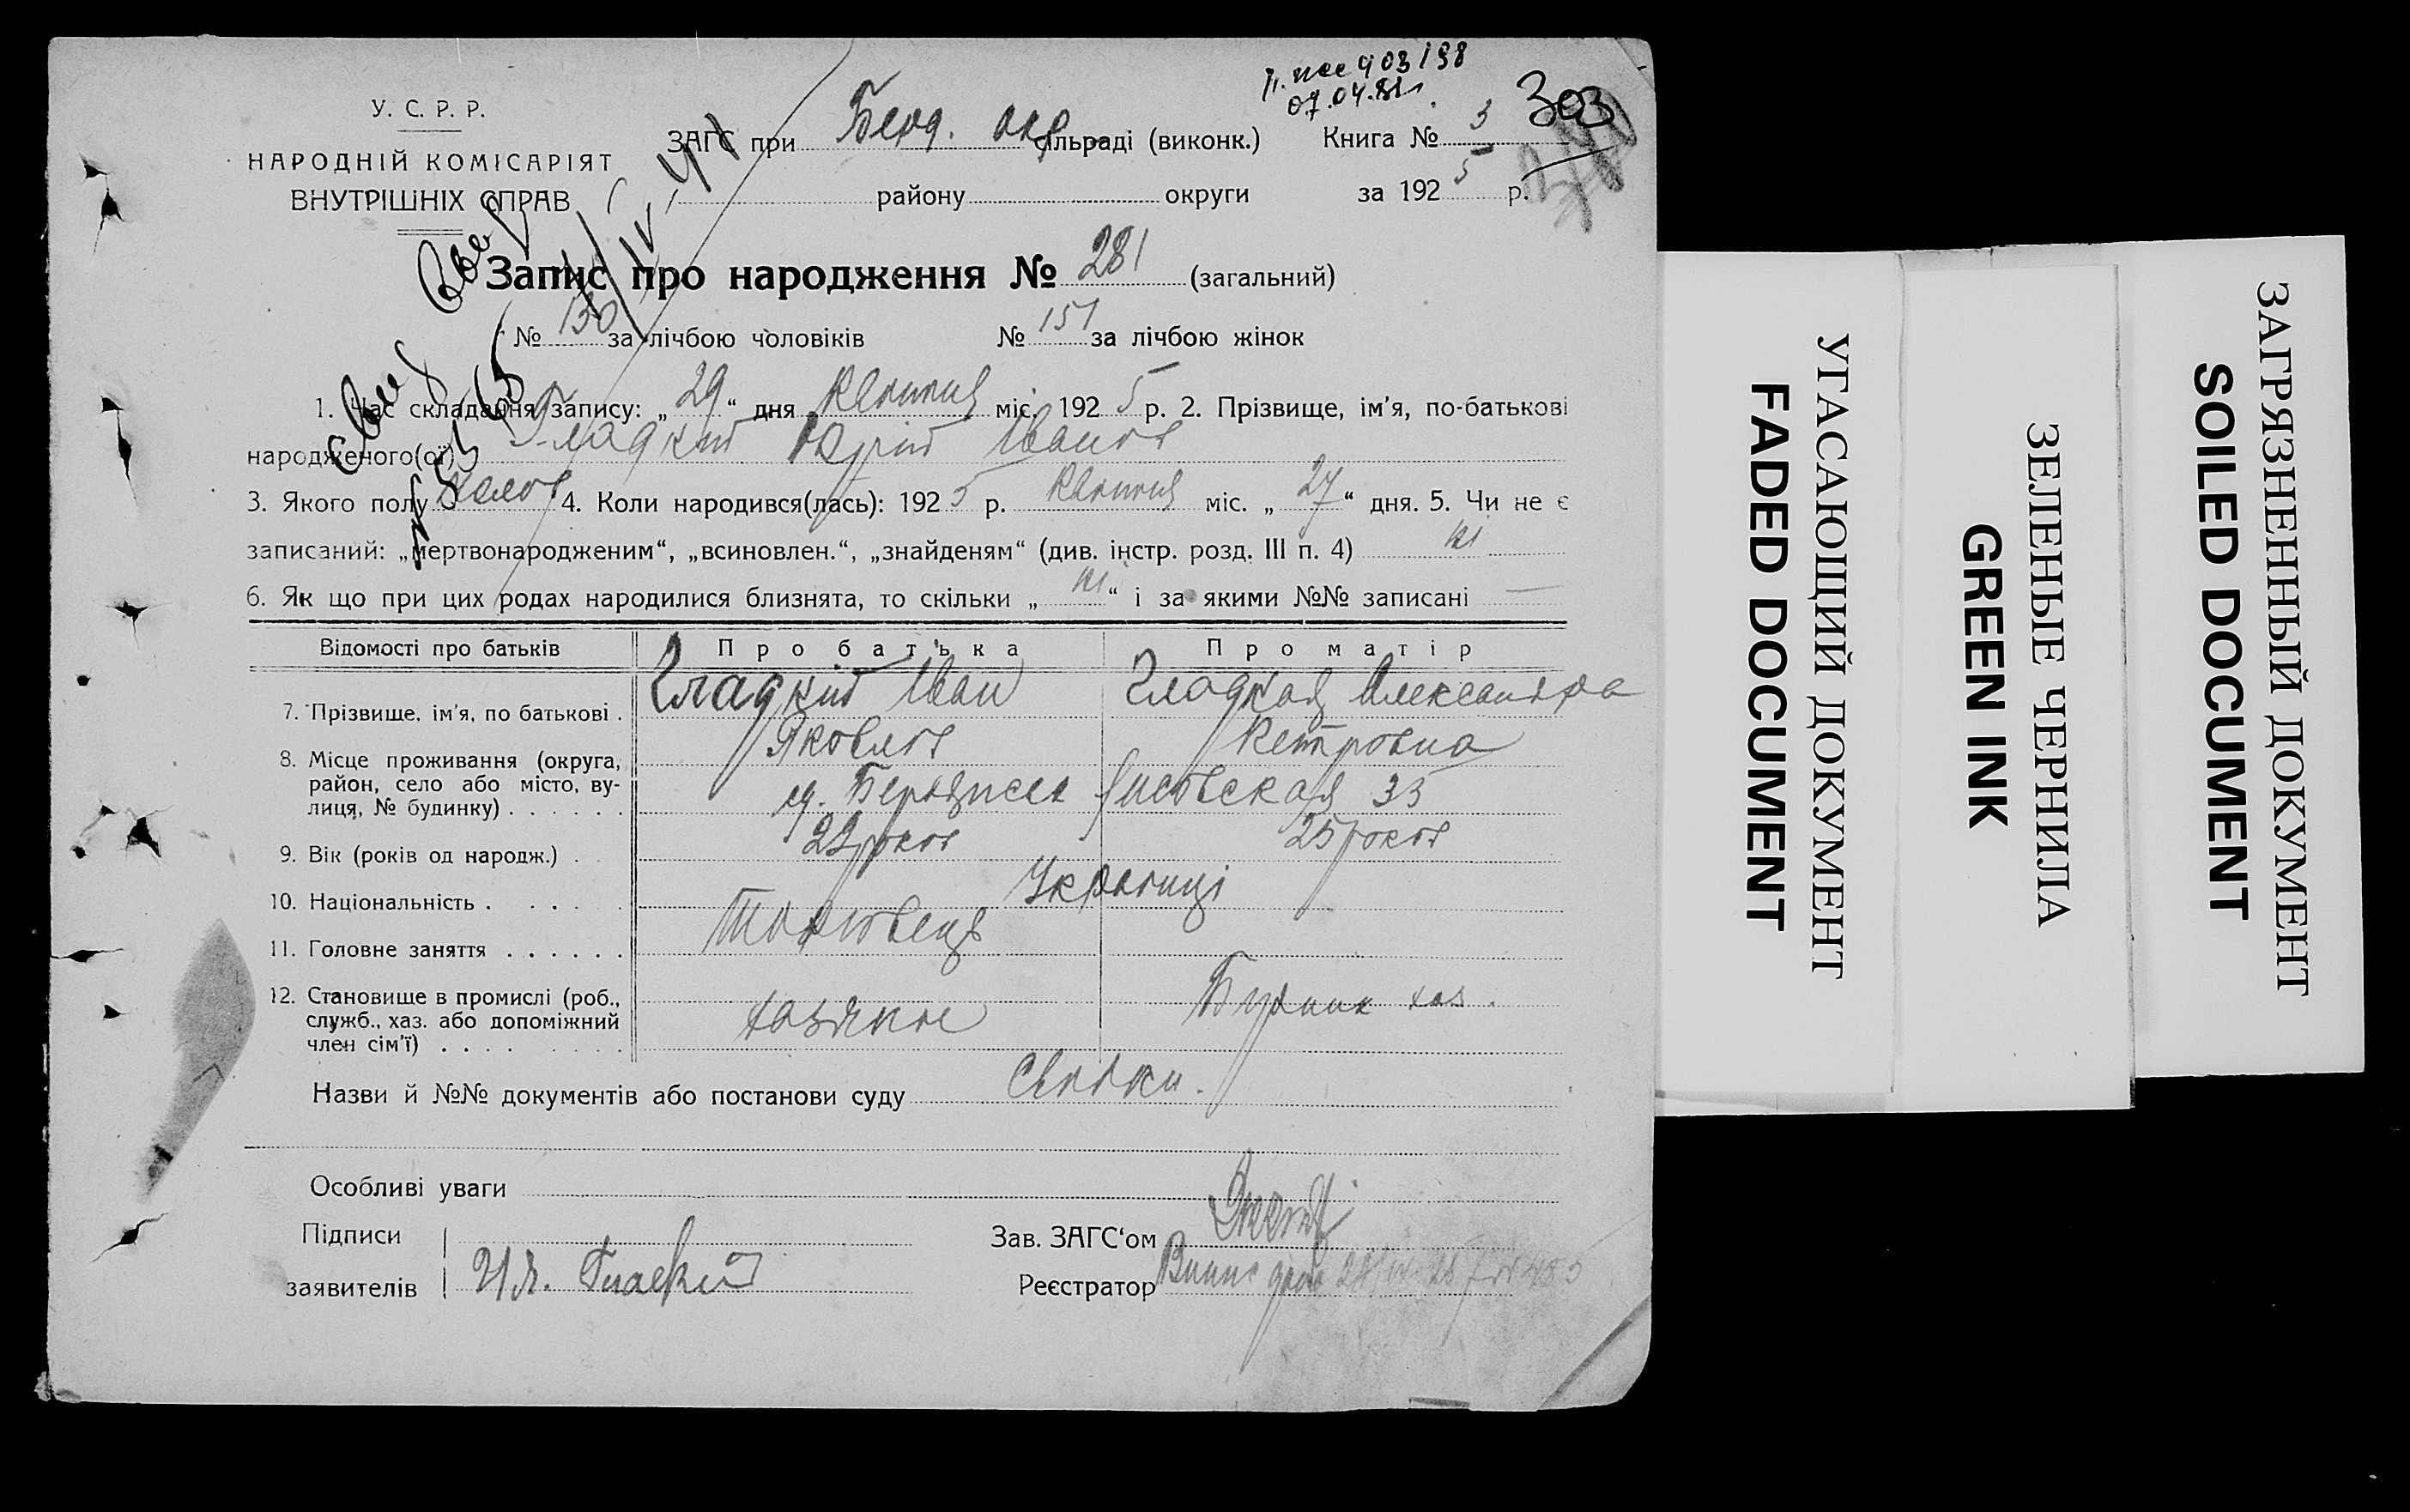 У. С. Р. Р.
НАРОДНІЙ КОМІСАРІЯТ
ВНУТРІШНІХ СПРАВ
07.04.81
303
ЗАГС при Берд. окр сільраді (виконк.) Книга № 3
району округи за 1925 р.
Запис про народження № 281 (загальний)
№ 130 за лічбою чоловіків № 151 за лічбою жінок
1. Час складання запису: „29“ дня квитня міс. 1925 р. 2. Прізвище, ім’я, по-батькові
народженого(ої) Гладкий Юрій Іванов
3. Якого полу 4. Коли народився(лась): 1925 р. квитня міс. „27“ дня. 5. Чи не є
записаний: „мертвонародженим“, „всиновлен.“, „знайденям“ (див. інстр. розд. III п. 4) ні
6. Як що при цих родах народилися близнята, то скільки „ні“ і за якими №№ записані —
Відомості про батьків Про батька Про матір
7. Прізвище, ім’я, по батькові . Гладкий Іван Яковлев Гладкая Александра Петровна
8. Місце проживання (округа,
район, село або місто, ву-
лиця, № будинку) . . . . . . Бердичев Лисовская 35
9. Вік (років од народж.) . 22 роков 25 роков
10. Національність . . . . . Украинці
11. Головне заняття . . . . . . Торговець
12. Становище в промислі (роб.,
служб., хаз. або допоміжний
член сім’ї) . . . . . . . . хаз.
Назви й №№ документів або постанови суду Свідки.
Особливі уваги
Підписи Зав. ЗАГС‘ом
заявителів И.Я. Гладкий Реєстратор
УГАСАЮЩИЙ ДОКУМЕНТ
FADED DOCUMENT
ЗЕЛЕНЫЕ ЧЕРНИЛА
GREEN INK
ЗАГРЯЗНЕННЫЙ ДОКУМЕНТ
SOILED DOCUMENT